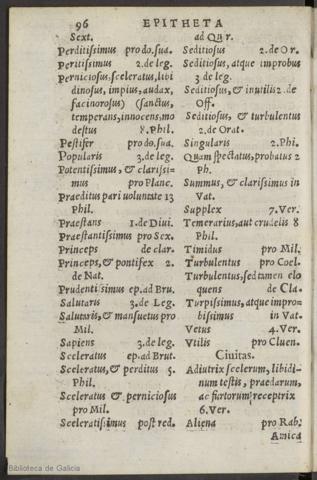 96 EPITHETA
Sext.
Perditissimus pro do. sua.
Peritissimus 2. de leg.
Perniciosus, sceleratus, libi
dinosus, impius, audax,
facinorosus) (sanctus,
temperans, innocens, mo
destus 8. Phil.
Pestifer pro do. sua.
Popularis 3. de leg.
Potentissimus, & clarissi-
mus pro Planc.
Praeditus pari voluntate 13
Phil.
Praestans 1. de Diui.
Praestantissimus pro Sex.
Princeps de clar.
Princeps, & pontifex 2.
de Nat.
Prudentissimus ep. ad Bru.
Salutaris 3. de Leg.
Salutaris, & mansuetus pro
Mil.
Sapiens 3. de leg.
Sceleratus ep. ad Brut.
Sceleratus, & perditus 5.
Phil.
Sceleratus & perniciosus
pro Mil.
Sceleratissimus post red.
ad Qu r.
Seditiosus 2. de Or.
Seditiosus, atque improbus
3 de leg.
Seditiosus, & inutilis 2. de
Off.
Seditiosus, & turbulentus
2. de Orat.
Singularis 2. Phi.
Quam spectatus, probatus 2
Ph.
Summus, & clarissimus in
Vat.
Supplex 7. Ver.
Temerarius, aut crudelis 8
Phil.
Timidus pro Mil.
Turbulentus pro Coel.
Turbulentus, sed tamen elo
quens de Cla.
Turpissimus, atque impro=
bissimus in Vat.
Vetus 4. Ver.
Vtilis pro Cluen.
Ciuitas.
Adiutrix scelerum, libidi-
num testis, praedarum,
ac furtorum receptrix
6. Ver.
Aliena pro Rab.
Amica
Biblioteca de Galicia